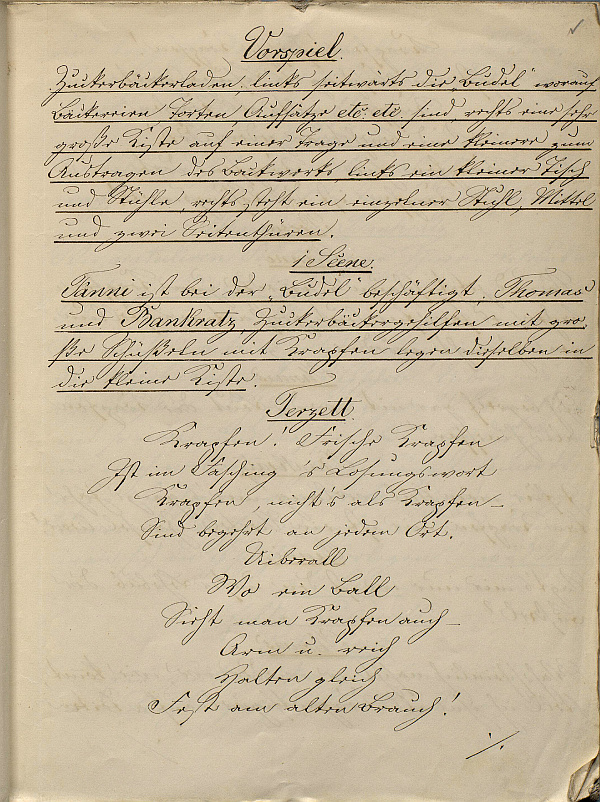 Vorspiel.
Zuckerbäckerladen. links seitwärts die „Budel" worauf
Bäckereien, Torten Aufsätze etc. etc. sind, rechts eine sehr
große Kiste auf einer Trage und eine kleinere zum
Austragen des Backwerks, links ein kleiner Tisch
und Stühle, rechts steht ein einzelner Stuhl, Mittel
und zwei Seitenthüren.
1 Scene.
Fanni ist bei der „Budel" beschäftigt, Thomas
und Pankratz, Zuckerbäckergehilfen mit gro-
ße Schüßeln mit Krapfen legen dieselben in
die kleine Kiste.
Terzett.
Krapfen! Frische Krapfen
Ist im Fasching 's Losungswort
Krapfen, nicht's als Krapfen –
Sind begehrt an jedem Ort.
Uiberall
Wo ein Ball
Sieht man Krapfen auch –
Arm u. reich
Halten gleich
Fest am alten Brauch!
./.